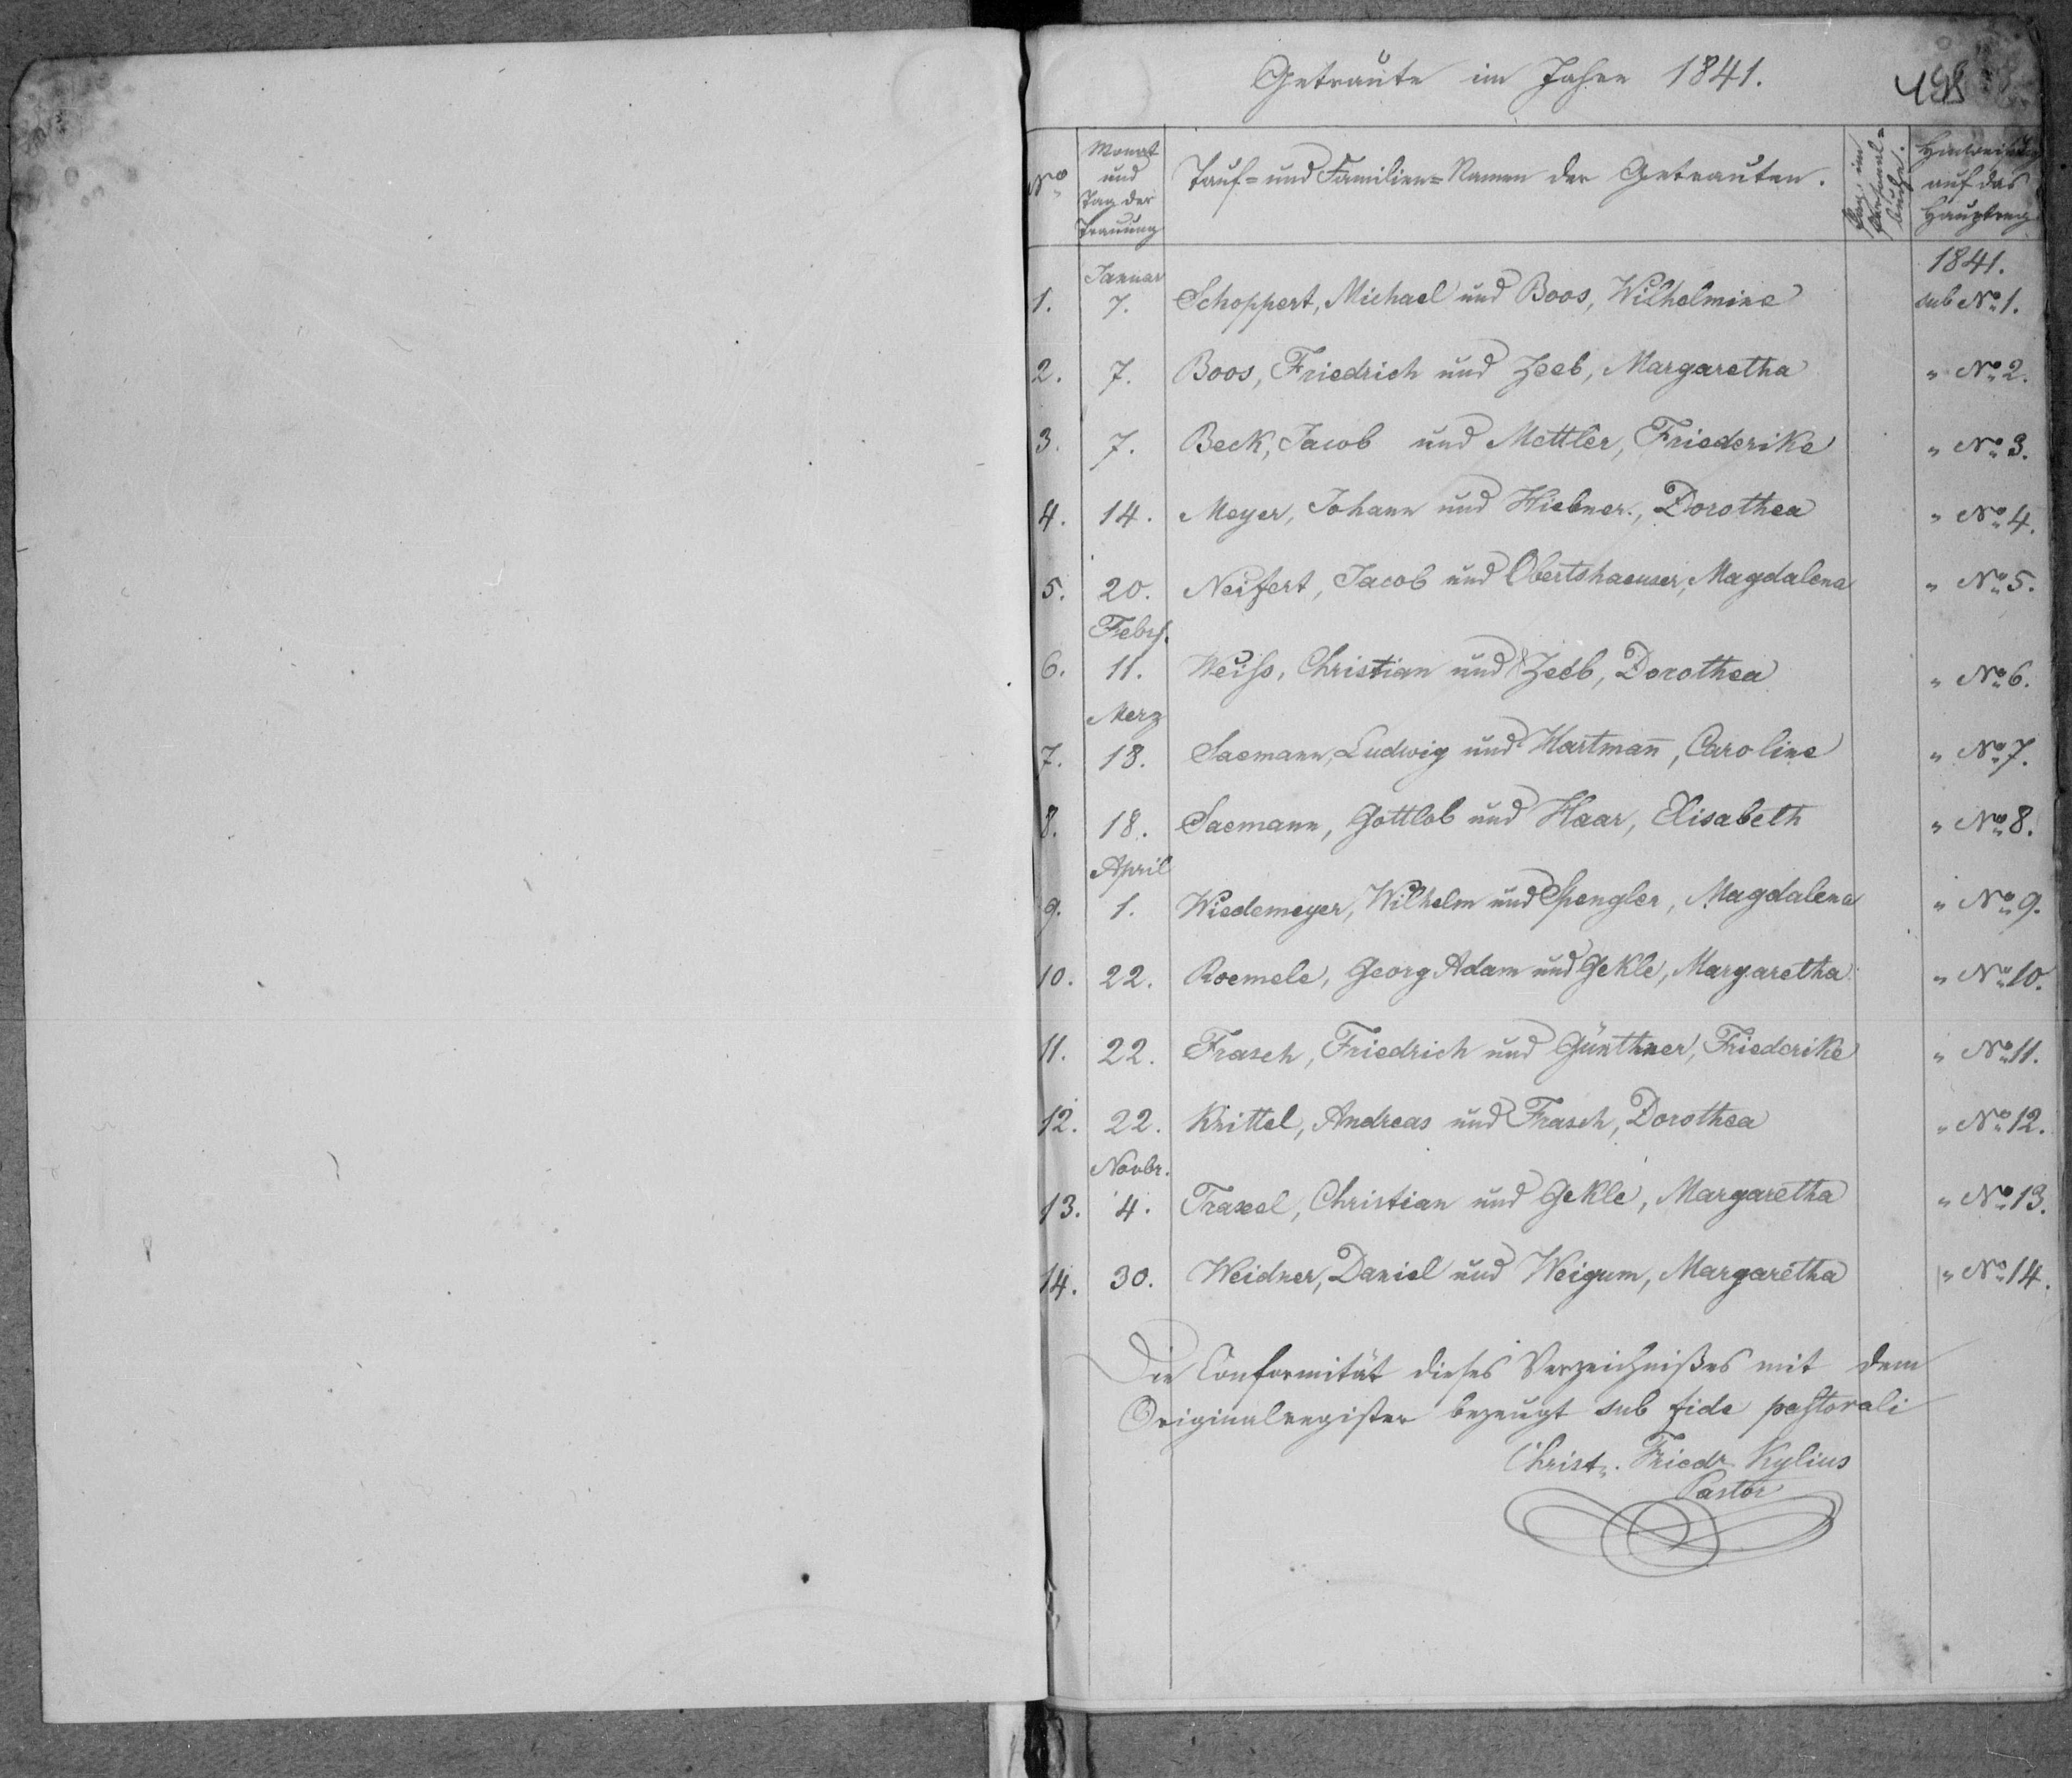 Getraute im Jahre 1841.
No
Monat und Tag der Trauung
Tauf- und Familien-Namen der Getrauten.
Pag. im Personal-buche.
Hinweisung auf das Hauptreg
Januar 1841.
1. 7. Schoppert, Michael und Boos, Wilhelmine sub No 1.
2. 7. Boos, Friedrich und Zeeb, Margaretha " No 2.
3. 7. Beck, Jacob und Mettler, Friederike " No 3.
4. 14. Meyer, Johann und Hiebner., Dorothea " No 4.
5. 20. Neifert, Jacob und Obertshaeuser, Magdalena " No 5.
Febr.
6. 11. Weiß, Christian und Zeeb, Dorothea " No 6.
Merz
7. 18. Saemann, Ludwig und Hartmañ, Caroline " No 7.
8. 18. Saemann, Gottlob und Haar, Elisabeth " No 8.
April
9. 1. Wiedemeyer, Wilhelm und Spengler, Magdalena " No 9.
10. 22. Roemele, Georg Adam und Gekle, Margaretha " No 10.
11. 22. Frasch, Friedrich und Günthner, Friederike " No 11.
12. 22. Knittel, Andreas und Frasch, Dorothea " No 12.
Novbr.
13. 4. Traxel, Christian und Gekle, Margaretha " No 13.
14. 30. Weidner, Daniel und Weigum, Margaretha " No 14.
Die Conformität dieses Verzeichnißes mit dem
Originalregister bezeugt sub fide pastorali
Christ. Friedr Kylius
Pastor